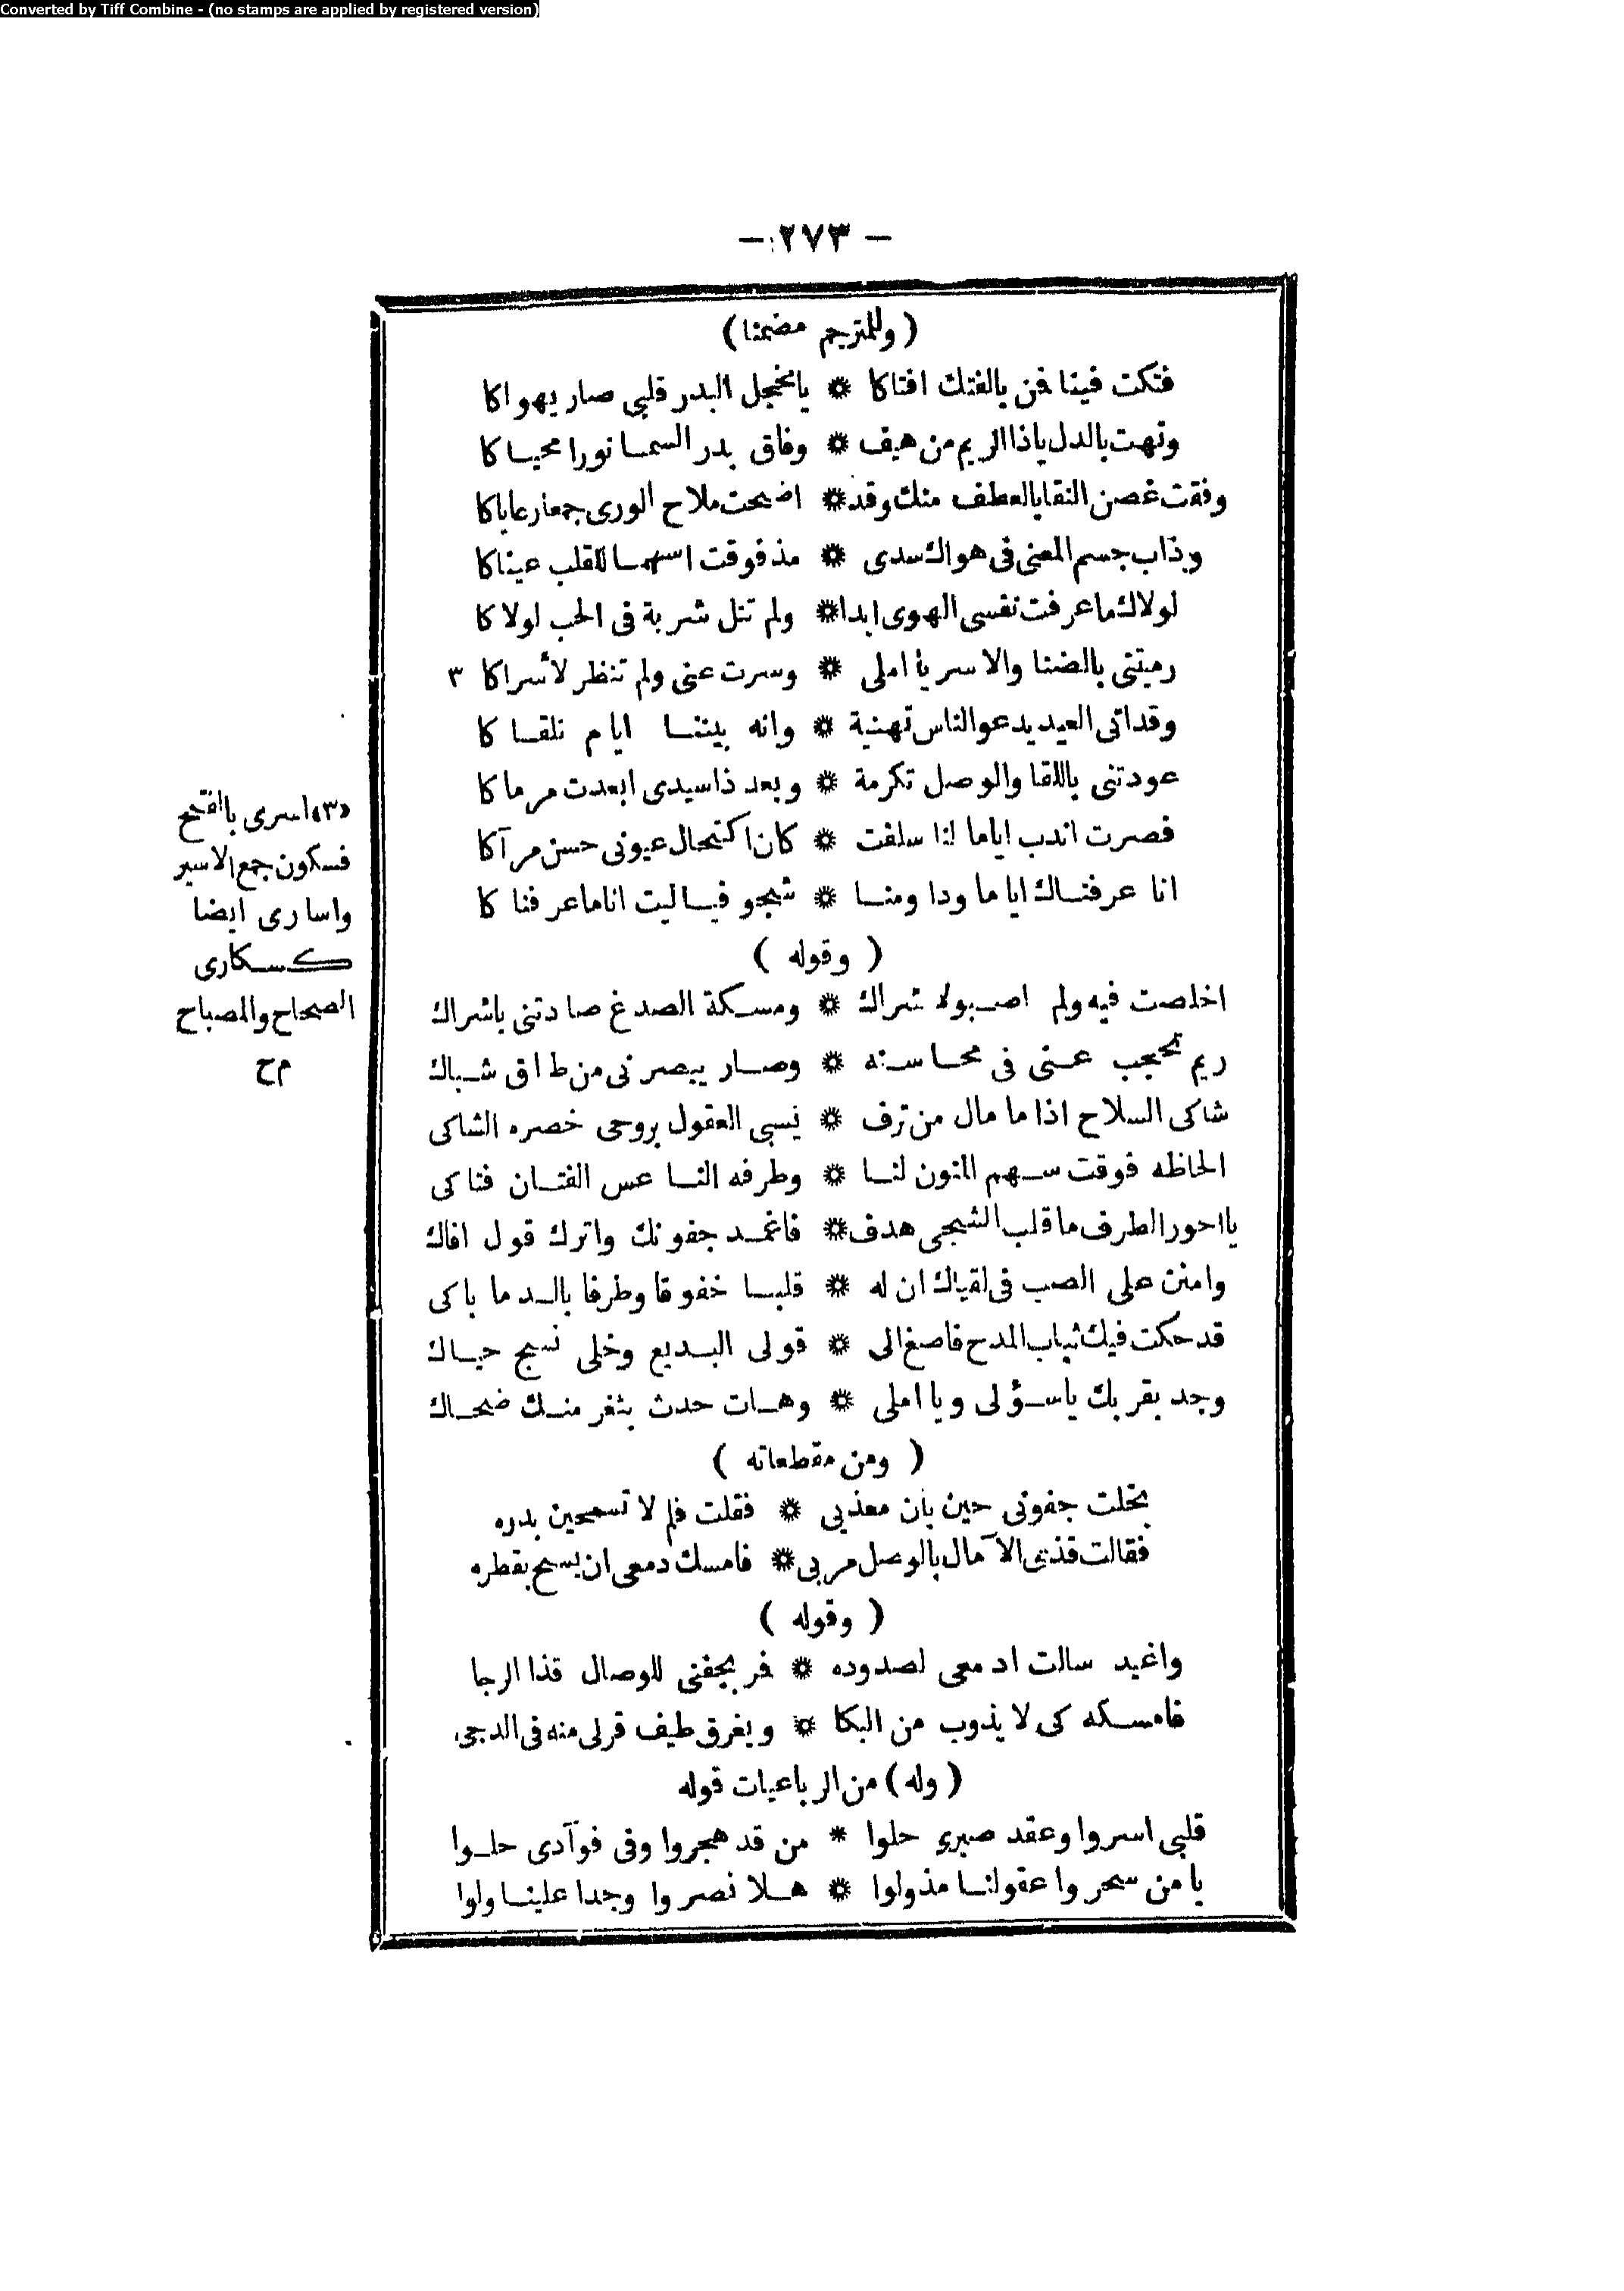 Converted by Tiff Combine - (no stamps are applied by registered version)
— ٢٧٣ —
( وللمترجم مضمنا )
فتكت فينا فمن بالفتك افتاكا * يا مخجل البدر قلبي صار يهواكا
وتهت بالدل ياذا الريم من هيف * وفاق بدر السما نورا محياكا
وفقت غصن النقا بالعطف منك وقد * اضحت ملاح الورى جمعا رعاياكا
وذاب جسم المعنى فى هواك سدى * مذ فوقت اسهما للقلب عيناكا
لولاك ما عرفت نفسى الهوى ابدا * ولم تنل شربة فى الحب لولاكا
رميتنى بالضنا والاسر يا املى * وسرت عنى ولم تنظر لأسراكا ٣
وقد اتى العيد يدعو الناس تهنية * وانه بيننا ايام نلقاكا
عودتنى باللقا والوصل تكرمة * وبعد ذا سيدى ابعدت مرماكا
فصرت اندب اياما لنا سلفت * كان اكتحال عيونى حسن مرآكا
انا عرفناك اياما ودا ومنا * شجو فياليت انا ما عرفناكا
( وقوله )
اخلصت فيه ولم اصبو لا شراك * ومسكة الصدغ صادتنى باشراك
ريم تحجب عنى فى محاسنه * وصار يبصرنى من طاق شباك
شاكى السلاح اذا ما مال من ترف * يسبى العقول بروحى خصره الشاكى
الحاظه فوقت سهم المنون لنا * وطرفه الناعس الفتان فتاكى
يا احور الطرف ما قلب الشجى هدف * فاغمد جفونك واترك قول افاك
وامنن على الصب فى لقياك ان له * قلبا خفوقا وطرفا بالدما باكى
قد حكت فيك ثياب المدح فاصغ الى * قولى البديع وخلى نسج حياك
وجد بقربك ياسؤلى ويا املى * وهات حدث بثغر منك ضحاك
( ومن مقطعاته )
بخلت جفونى حين بان معذبى * فقلت فلم لا تسمحين بدره
فقالت قذى الآمال بالوصل مر بى * فامسك دمعى ان يسح بقطره
( وقوله )
واغيد سالت ادمعى لصدوده * فمر بجفنى للوصال قذا الرجا
فامسكه كى لا يذوب من البكا * ويغرق طيف قرلى منه فى الدجى
( وله ) من الرباعيات قوله
قلبى اسروا وعقد صبرى حلوا * من قد هجروا وفى فوآدى حلوا
يا من سحروا عقولنا مذولوا * هلا نصروا وجدا علينا ولوا
«٣» اسرى بالفتح
فسكون جمع الاسير
واسارى ايضا
كسكارى
الصحاح والمصباح
م ح